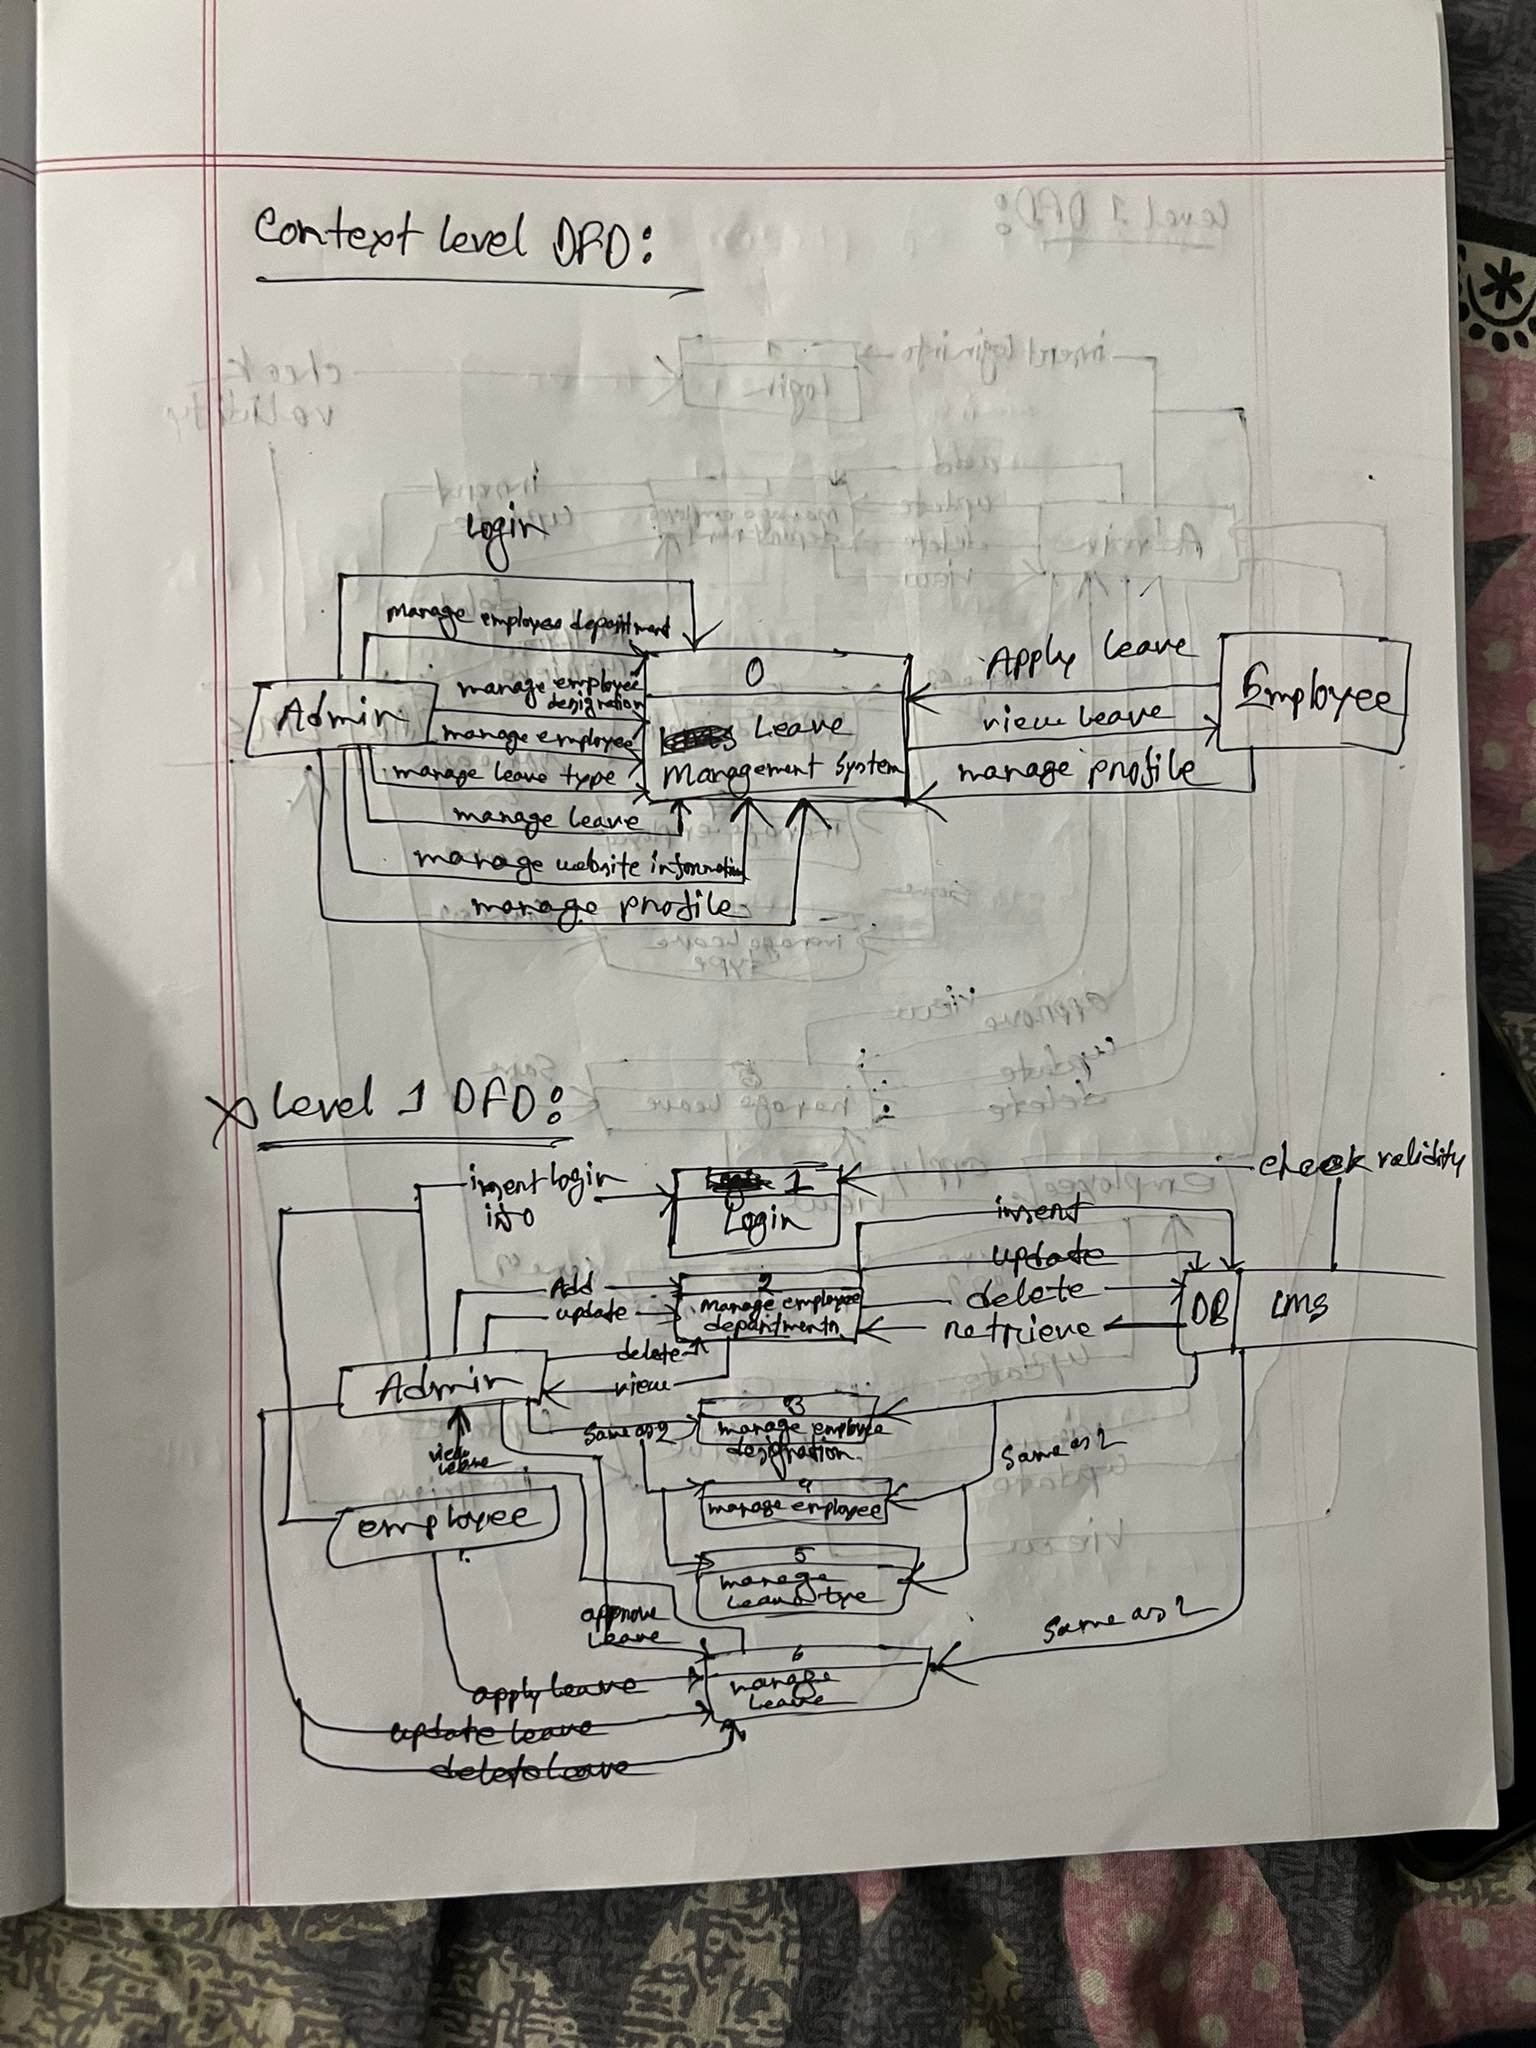 Context Level DFD:
Login
Manage employee department
manage employee
designation
manage employee
manage leave type
manage leave
manage website information
manage profile
Admin
0
Leave
Management System
Apply Leave
view leave
manage profile
Employee
X Level 1 DFD:
insert login
info
1
Login
check validity
Add
update
delete
view
2
Manage employee
departments
insert
update
delete
retrieve
DB
LMS
Admin
same as 2
3
manage employee
designation
same as 2
view
leave
4
manage employee
employee
5
manage
leave type
approve
leave
6
manage
leave
same as 2
apply leave
update leave
delete leave